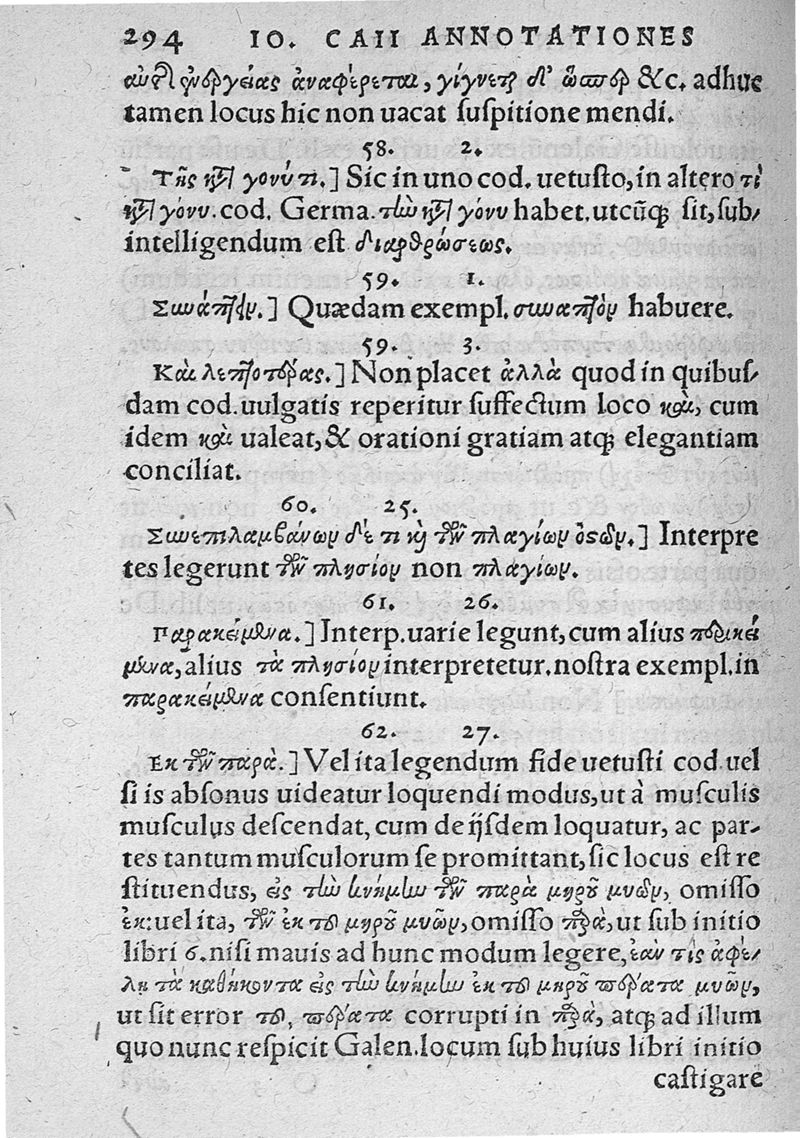 294 IO. CAII ANNOTATIONES
ἀναφέρεται, γίγνεται δ' ὥσπερ &c. adhuc
tamen locus hic non uacat suspitione mendi.
58. 2.
Τῆς κατὰ γόνυ τι.] Sic in uno cod. uetusto, in altero τὶ
κατὰ γόνυ. cod. Germa. τὼ κατὰ γόνυ habet. utcũq; sit, sub-
intelligendum est διαρθρώσεως.
59. 1.
Συνάπτειν.] Quædam exempl. συναπτὸν habuere.
59. 3.
Καὶ λεπτοτέρας.] Non placet ἀλλὰ quod in quibus-
dam cod. uulgatis reperitur suffectum loco καὶ, cum
idem καὶ ualeat, & orationi gratiam atq; elegantiam
conciliat.
60. 25.
Συνεπιλαμβάνων δέ τι καὶ τῶν πλαγίων ὀστῶν.] Interpre
tes legerunt τῶν πλησίον non πλαγίων.
61. 26.
Παρακείμενα.] Interp. uarie legunt, cum alius περικεί
μενα, alius τὰ πλησίον interpretetur. nostra exempl. in
παρακείμενα consentiunt.
62. 27.
Εκ τῶν παρὰ.] Vel ita legendum fide uetusti cod. uel
si is absonus uideatur loquendi modus, ut à musculis
musculus descendat, cum de ijsdem loquatur, ac par-
tes tantum musculorum se promittant, sic locus est re
stituendus, εἰς τὴν κνήμην τῶν παρὰ μηροῦ μυῶν, omisso
ἐκ: uel ita, τῶν ἐκ τοῦ μηροῦ μυῶν, omisso παρὰ, ut sub initio
libri 6. nisi mauis ad hunc modum legere, ἐαν τὶς ἀφέ-
λῃ τὰ καθήκοντα εἰς τὴν κνήμην ἐκ τοῦ μηροῦ πέρατα μυῶν,
ut sit error τοῦ, πέρατα corrupti in παρὰ, atq; ad illum
quo nunc respicit Galen. locum sub huius libri initio
castigare